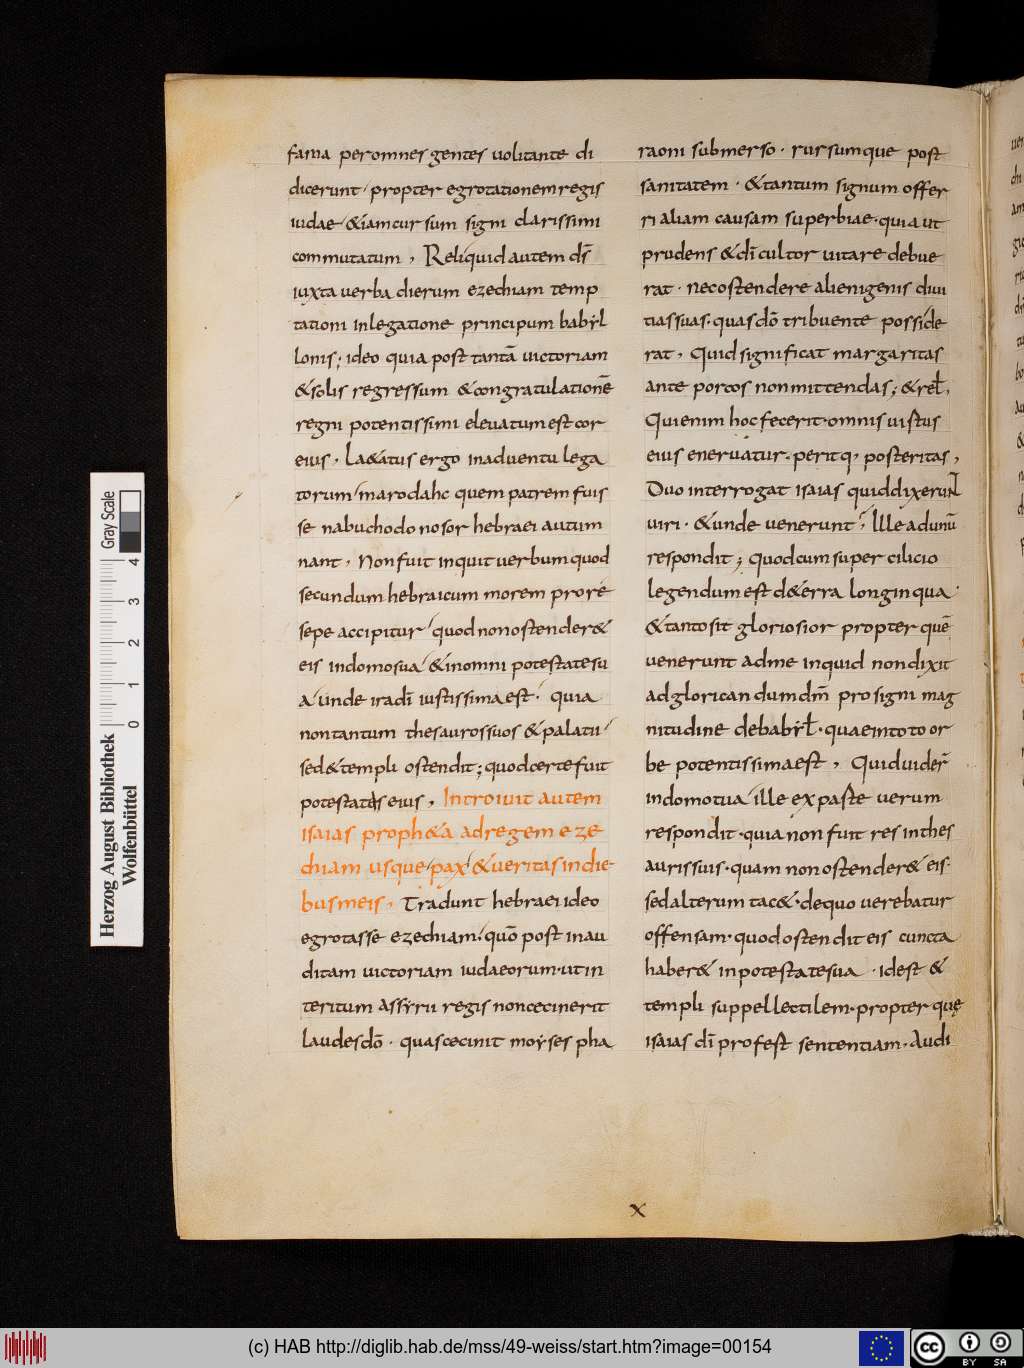 fama per omnes gentes uolitante di
dicerunt propter egrotationem regis
iudae &iam cursum signi clarissimi
commutatum, Reliquid autem d̅s̅
iuxta uerba dierum ezechiam temp
tationi in legatione principum babyl
lonis; ideo quia post tantā uictoriam
&solis regressum &congratulationē
regni potentissimi eleuatum est cor
eius, La&atus ergo in aduentu lega
torum marodahc quem patrem fuis
se nabuchodonosor hebraei autum
nant, Non fuit inquit uerbum quod
secundum hebraicum morem pro re
sepe accipitur quod non ostender&
eis in domo sua &in omni potestate su
a unde ira d̅i̅ iustissima est. quia
non tantum thesauros suos &palatii
sed&templi ostendit; quod certe fuit
potestatis eius, Introiuit autem
isaias proph&a ad regem eze
chiam usque pax &ueritas in die-
bus meis, Tradunt hebraei ideo
egrotasse ezechiam. quō post inau
ditam uictoriam iudaeorum. ut in
teritum assyrii regis non cecinerit
laudes dō. quas cecinit moyses pha
raoni submerso. rursumque post
sanitatem. &tantum signum offer
ri aliam causam superbiae. quia ut
prudens &d̅i̅ cultor uitare debue
rat. nec ostendere alienigenis diui
tias suas. quas dō tribuente posside
rat, Quid significat margaritas
ante porcos non mittendas; &rel̅,
Qui enim hoc fecerit. omnis uirtus
eius eneruatur. perit q, posteritas,
Duo interrogat isaias quid dixerunt
uiri. &unde uenerunt; Ille ad unū
respondit; quod cum supercilicio
legendum est d&erra longinqua.
&tanto sit gloriosior propter quē
uenerunt ad me inquid non dixit
ad gloricandum dm̅ pro signi mag
nitudine de babyl̅. quae in toto or
be potentissima est, Quid uider̅
in domo tua ille ex paste uerum
respondit. quia non fuit res in thes
auris suis. quam non ostender& eis.
sed alterum tac&. de quo uerebatur
offensam. quod ostendit eis cuncta
haber& in potestate sua. idest &
templi suppellectilem. propter quę
isaias d̅i̅ profest sententiam. Audi
x
Herzog August Bibliothek
Wolfenbüttel
0 1 2 3 4
Gray Scale
(c) HAB http://diglib.hab.de/mss/49-weiss/start.htm?image=00154
cc BY SA